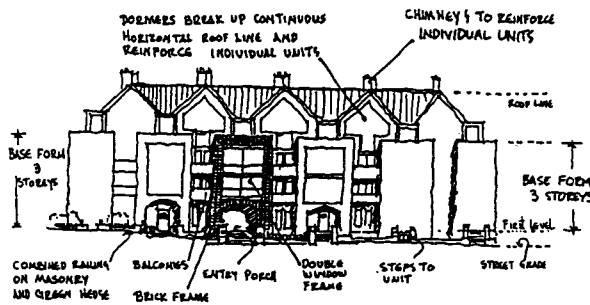 DORMERS BREAK UP CONTINUOUS
HORIZONTAL ROOF LINE AND
REINFORCE INDIVIDUAL UNITS
CHIMNEYS TO REINFORCE
INDIVIDUAL UNITS
ROOF LINE
BASE FORM
3
STOREYS
BASE FORM
3 STOREYS
FIRST LEVEL
STREET GRADE
COMBINED RAILING
ON MASONRY
AND GREEN HEDGE
BALCONIES
BRICK FRAME
ENTRY PORCH
DOUBLE
WINDOW
FRAME
STEPS TO
UNIT